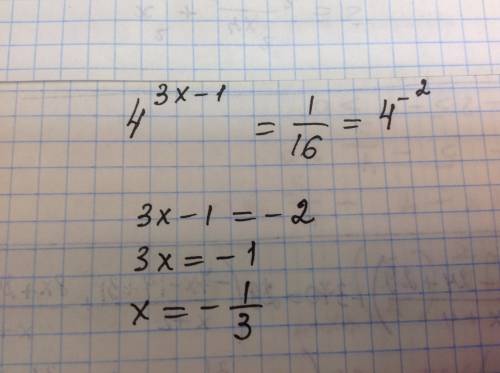 4^{3x-1} = \frac{1}{16} = 4^{-2}
3x-1 = -2
3x = -1
x = -\frac{1}{3}